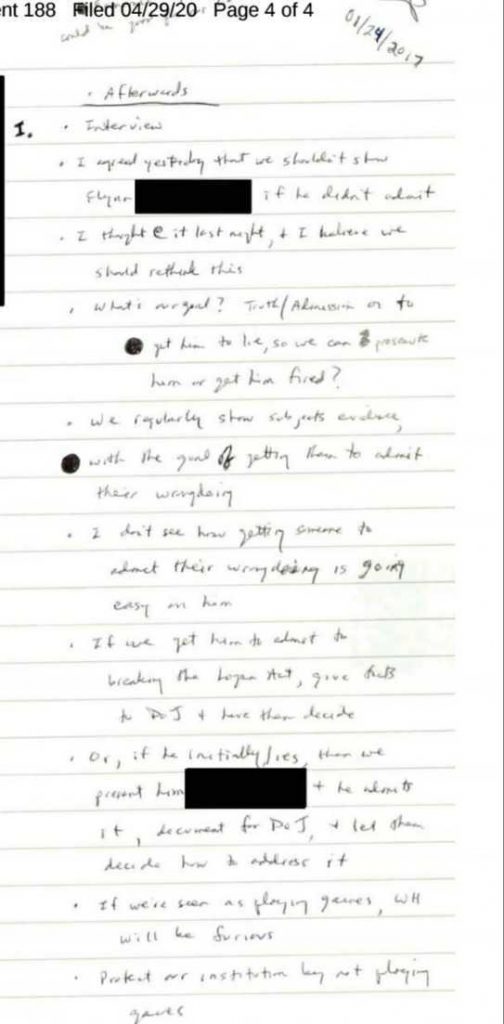 nt 188 Filed 04/29/20 Page 4 of 4
could be
01/24/2017
· Afterwards
I. · Interview
· I agreed yesterday that we shouldn't show
Flynn if he didn't admit
· I thought @ it last night, + I believe we
should rethink this
· What's our goal? Truth/Admission or to
get him to lie, so we can prosecute
him or get him fired?
· We regularly show subjects evidence,
with the goal of getting them to admit
their wrongdoing
· I don't see how getting someone to
admit their wrongdoing is going
easy on him
· If we get him to admit to
breaking the Logan Act, give facts
to DoJ + have them decide
· Or, if he initially lies, then we
present him + he admits
it, document for DoJ, + let them
decide how to address it
· If we're seen as playing games, WH
will be furious
· Protect our institution by not playing
games